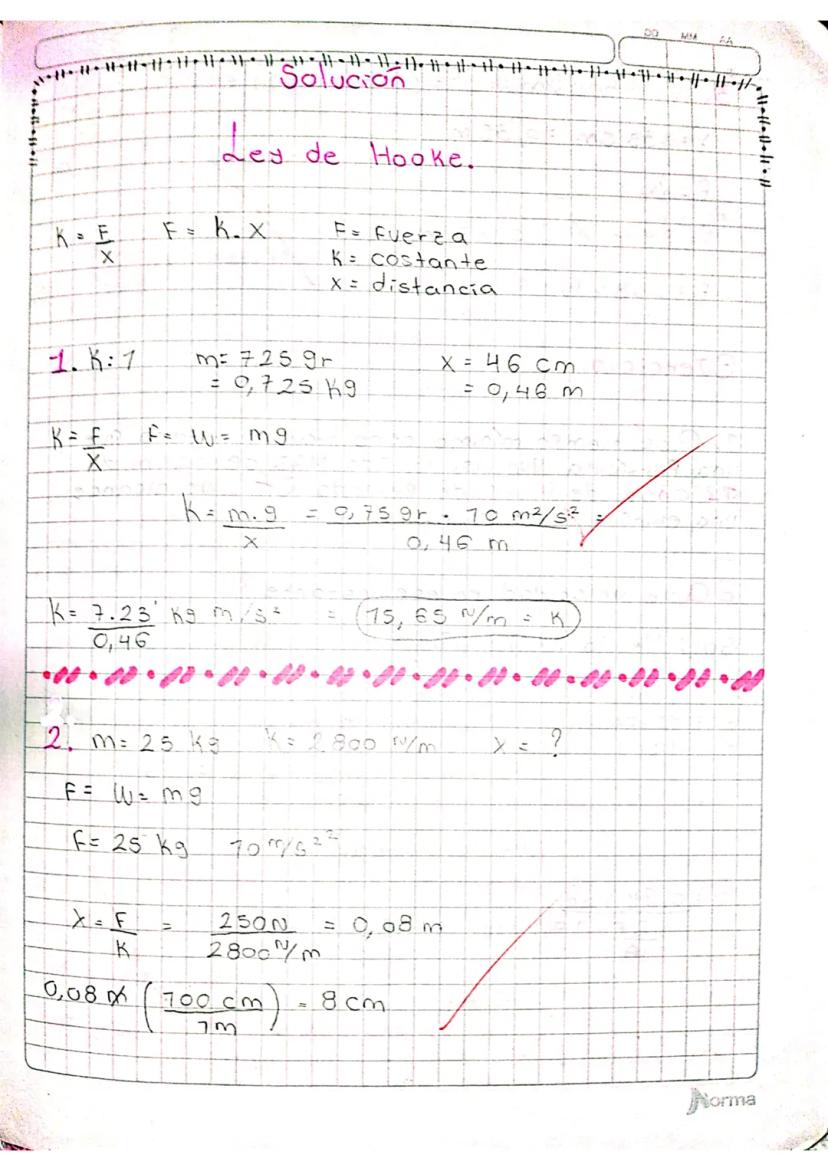 DD MM AA
Solución
Ley de Hooke.
K = F/X F = K. X F= fuerza
K= costante
X= distancia
1. K: 1 m= 725 gr X = 46 cm
= 0,725 Kg = 0,46 m
K= F/X F= W= mg
K= m.g/x = 0,75 gr · 10 m2/s2/0,46 m =
K= 7.23 kg m/s2/0,46 = 15,65 N/m = K
2. m= 25 Kg K= 2800 N/m X = ?
F= W= mg
F= 25 Kg 10 m/s2 2
X= F/K = 250N/2800 N/m = 0,08 m
0,08 m (100 cm/1m) = 8 cm
Norma